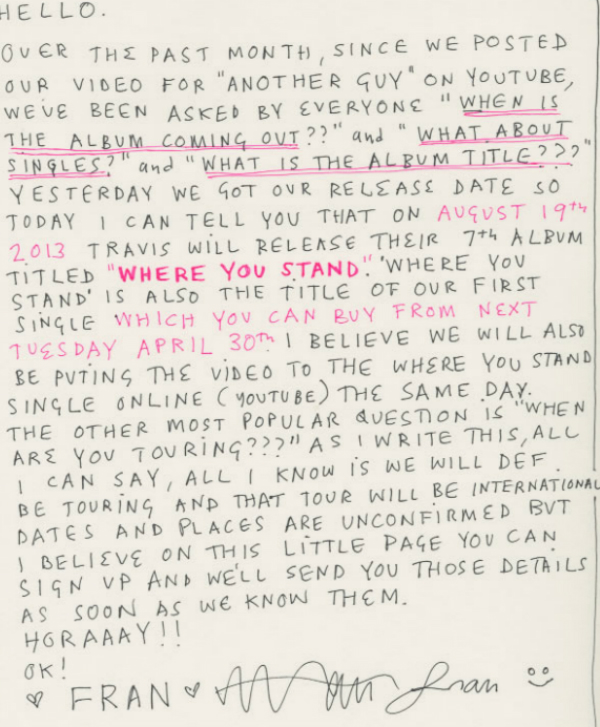 HELLO.
OVER THE PAST MONTH, SINCE WE POSTED
OUR VIDEO FOR "ANOTHER GUY" ON YOUTUBE,
WE'VE BEEN ASKED BY EVERYONE "WHEN IS
THE ALBUM COMING OUT??" and "WHAT ABOUT
SINGLES?" and "WHAT IS THE ALBUM TITLE???"
YESTERDAY WE GOT OUR RELEASE DATE SO
TODAY I CAN TELL YOU THAT ON AUGUST 19th
2013 TRAVIS WILL RELEASE THEIR 7th ALBUM
TITLED "WHERE YOU STAND". 'WHERE YOU
STAND' IS ALSO THE TITLE OF OUR FIRST
SINGLE WHICH YOU CAN BUY FROM NEXT
TUESDAY APRIL 30th. I BELIEVE WE WILL ALSO
BE PUTING THE VIDEO TO THE WHERE YOU STAND
SINGLE ONLINE (YOUTUBE) THE SAME DAY.
THE OTHER MOST POPULAR QUESTION IS "WHEN
ARE YOU TOURING???" AS I WRITE THIS, ALL
I CAN SAY, ALL I KNOW IS WE WILL DEF.
BE TOURING AND THAT TOUR WILL BE INTERNATIONAL
DATES AND PLACES ARE UNCONFIRMED BUT
I BELIEVE ON THIS LITTLE PAGE YOU CAN
SIGN UP AND WE'LL SEND YOU THOSE DETAILS
AS SOON AS WE KNOW THEM.
HORAAAY!!
OK!
♡ FRAN ♡ Fran